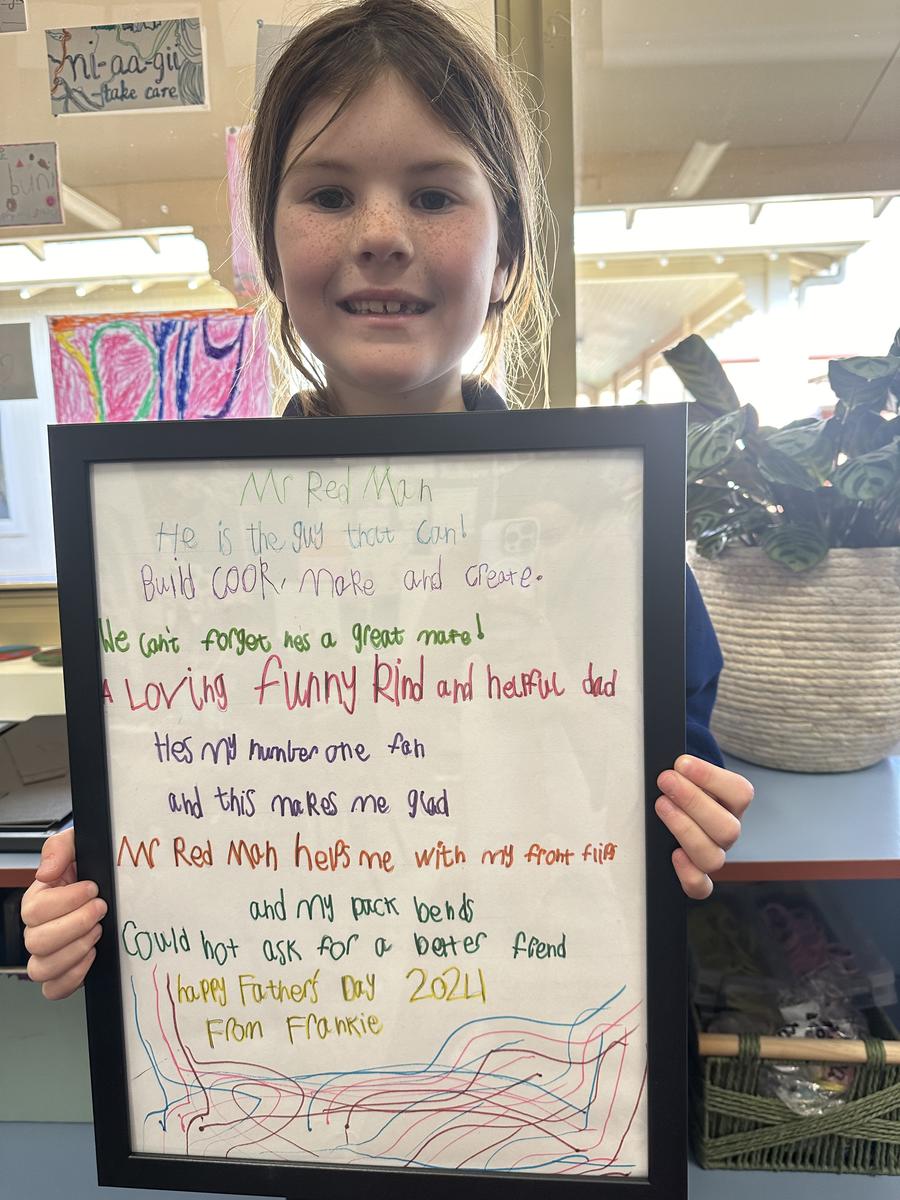 ni-aa-gii
-take care
buni
Mr Red Man
He is the guy that can!
Build COOK, Make and create.
We can't forget hes a great mate!
A Loving funny kind and helpful dad
Hes my number one fan
and this makes me glad
Mr Red Man helps me with my front flips
and my back bends
Could not ask for a better fiend
happy Father's Day 2024
From Frankie